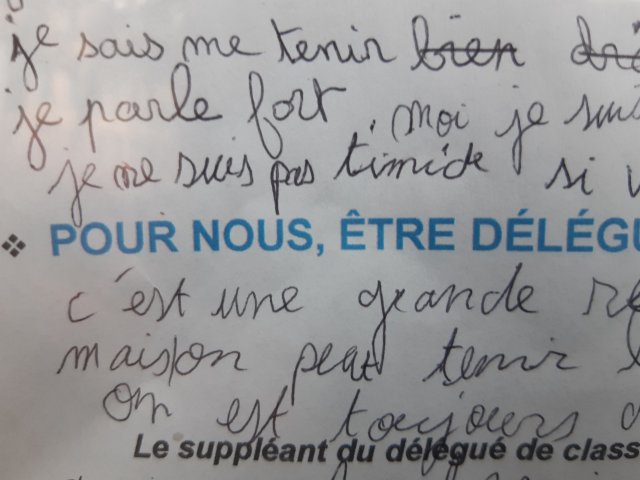 je sais me tenir bien
je parle fort, moi je suis
je ne suis pas timide si
❖ POUR NOUS, ÊTRE DÉLÉGU
c'est une grande re
maison peut tenir
On est toujours
Le suppléant du délégué de class